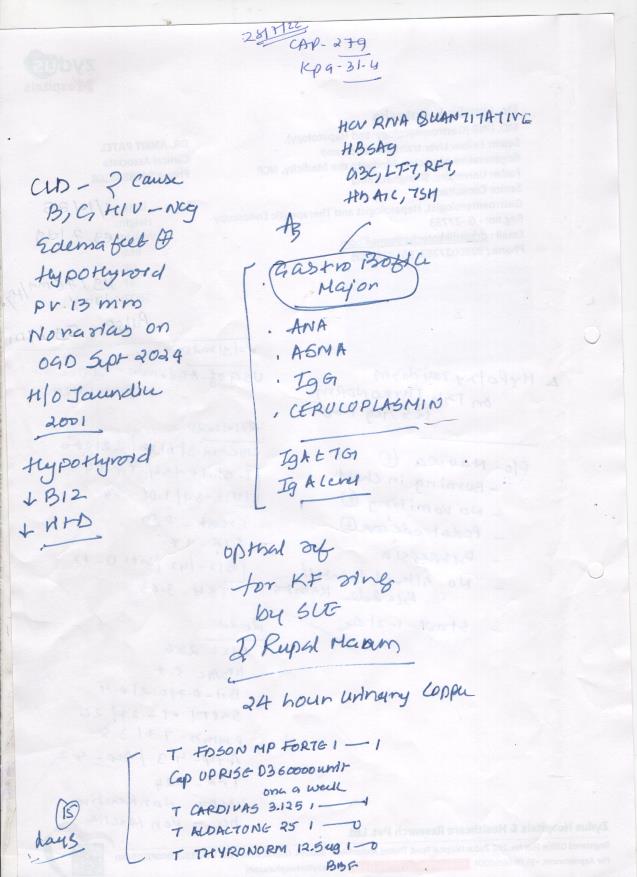 CAP-279
Kpa-31.4
HCV RNA QUANTITATIVE
HBSAg
CBC, LFT, RFT,
HbA1C, TSH
CLD - ? cause
B, C, HIV - Neg
Edema feet ⊕
Hypothyroid
PV. 13 mm
No varias on
OGD Sept 2024
H/O Jaundice
2001
Hypothyroid
↓ B12
↓ Vit D
Gastro
Major
. ANA
. ASMA
. IgG
. CERULOPLASMIN
IgA tTG
IgA level
opthal ref
for KF ring
by SLE
Rupal Madam
24 hour urinary Copper
15
days
T FDSON MP FORTE 1 — 1
Cap UDRISE D3 60000 unit
once a week
T CARDIVAS 3.125 1 — 1
T ALDACTONE 25 1 — 0
T THYRONORM 12.5ug 1 — 0
BBF